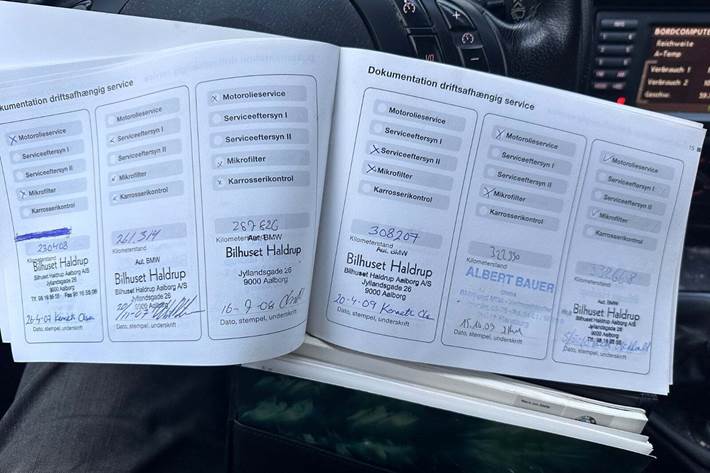 Dokumentation driftsafhængig service
Motorolieservice
Serviceeftersyn I
Serviceeftersyn II
Mikrofilter
Karrosserikontrol
230408
Kilometerstand
Aut. BMW
Bilhuset Haldrup
Bilhuset Haldrup Aalborg A/S
Jyllandsgade 26
9000 Aalborg
26-4-07
Dato, stempel, underskrift
Motorolieservice
Serviceeftersyn I
Serviceeftersyn II
Mikrofilter
Karrosserikontrol
261.314
Kilometerstand
Aut. BMW
Bilhuset Haldrup
Bilhuset Haldrup Aalborg A/S
Jyllandsgade 26
9000 Aalborg
Dato, stempel, underskrift
Motorolieservice
Serviceeftersyn I
Serviceeftersyn II
Mikrofilter
Karrosserikontrol
Kilometerstand
Aut. BMW
Bilhuset Haldrup
Jyllandsgade 26
9000 Aalborg
16-9-08
Dato, stempel, underskrift
Dokumentation driftsafhængig service
Motorolieservice
Serviceeftersyn I
Serviceeftersyn II
Mikrofilter
Karrosserikontrol
308207
Kilometerstand
Aut. BMW
Bilhuset Haldrup
Bilhuset Haldrup Aalborg A/S
Jyllandsgade 26
9000 Aalborg
20-4-09
Dato, stempel, underskrift
Motorolieservice
Serviceeftersyn I
Serviceeftersyn II
Mikrofilter
Karrosserikontrol
Kilometerstand
ALBERT BAUER
Dato, stempel, underskrift
Motorolieservice
Serviceeftersyn I
Serviceeftersyn II
Mikrofilter
Karrosserikontrol
Kilometerstand
Aut. BMW
Bilhuset Haldrup
Bilhuset Haldrup Aalborg A/S
Jyllandsgade 26
9000 Aalborg
Dato, stempel, underskrift
15
BORDCOMPUTER
Reichweite
A-Temp
Verbrauch 1
Verbrauch 2
Geschw.